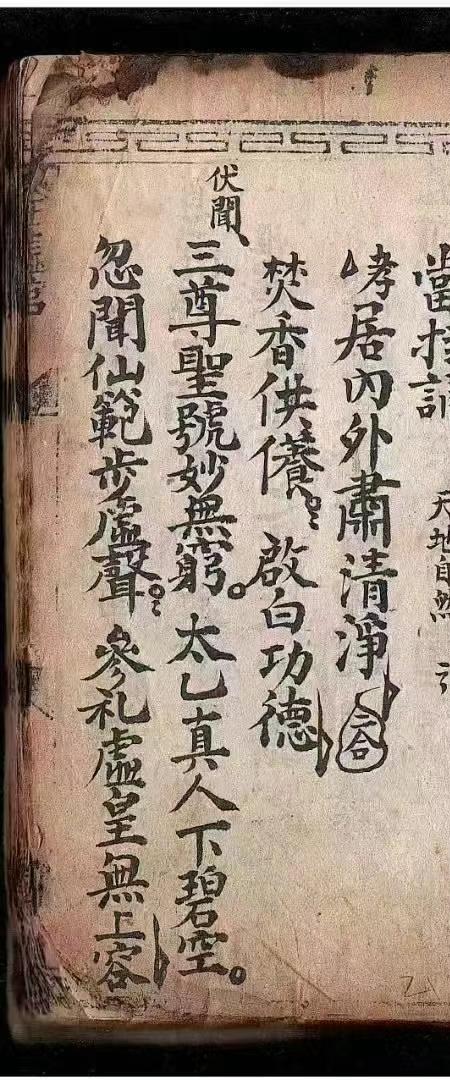 當
天地自然
孝居內外肅清淨
合
焚香供養。啟白功德
伏聞
三尊聖號妙無窮。太乙真人下碧空。
忽聞仙範步虛聲。參礼虛皇無上容